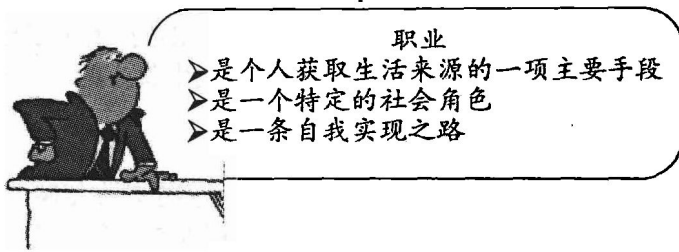 职业
➢是个人获取生活来源的一项主要手段
➢是一个特定的社会角色
➢是一条自我实现之路